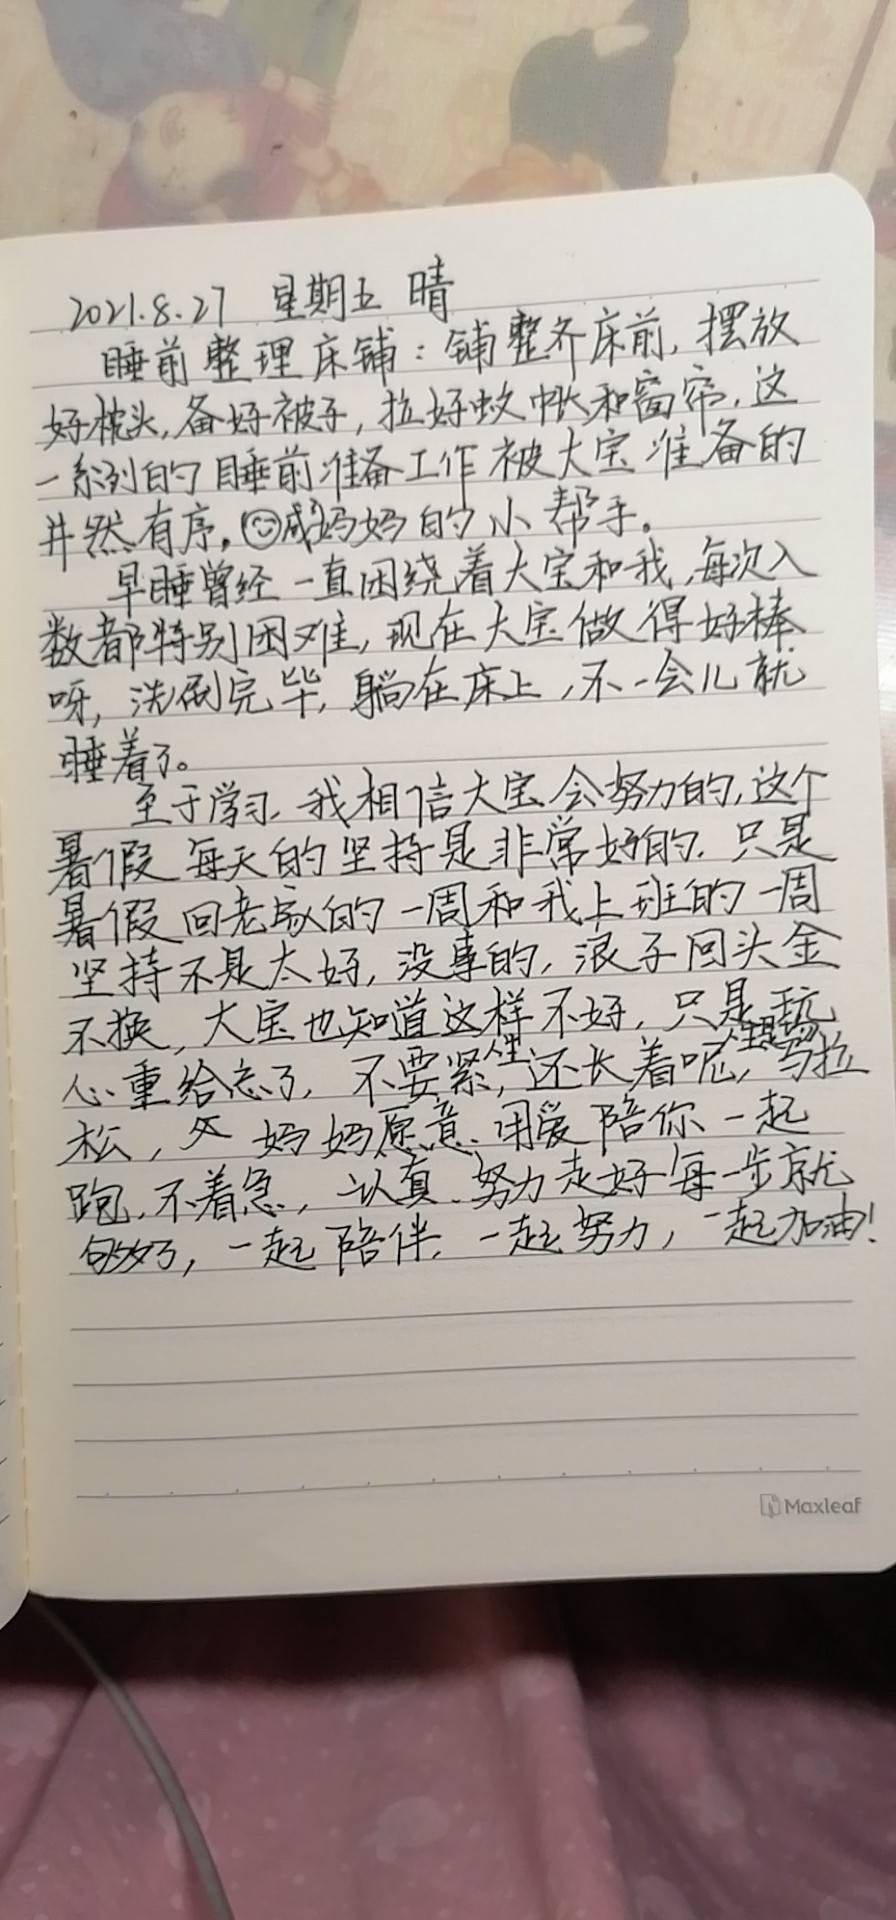 2021.8.27 星期五 晴
睡前整理床铺：铺整齐床前，摆放
好枕头，备好被子，拉好蚊帐和窗帘，这
一系列的睡前准备工作被大宝准备的
井然有序。成妈妈的小帮手。
早睡曾经一直困绕着大宝和我，每次入
数都特别困难，现在大宝做得好棒
呀，洗刷完毕，躺在床上，不一会儿就
睡着了。
至于学习，我相信大宝会努力的，这个
暑假每天的坚持是非常好的，只是
暑假回老家的一周和我上班的一周
坚持不是太好，没事的，浪子回头金
不换，大宝也知道这样不好，只是玩
心重给忘了，不要紧，人生还长着呢，人生是场马拉
松，妈妈愿意用爱陪你一起
跑，不着急，认真努力走好每一步就
够了，一起陪伴，一起努力，一起加油！
Maxleaf